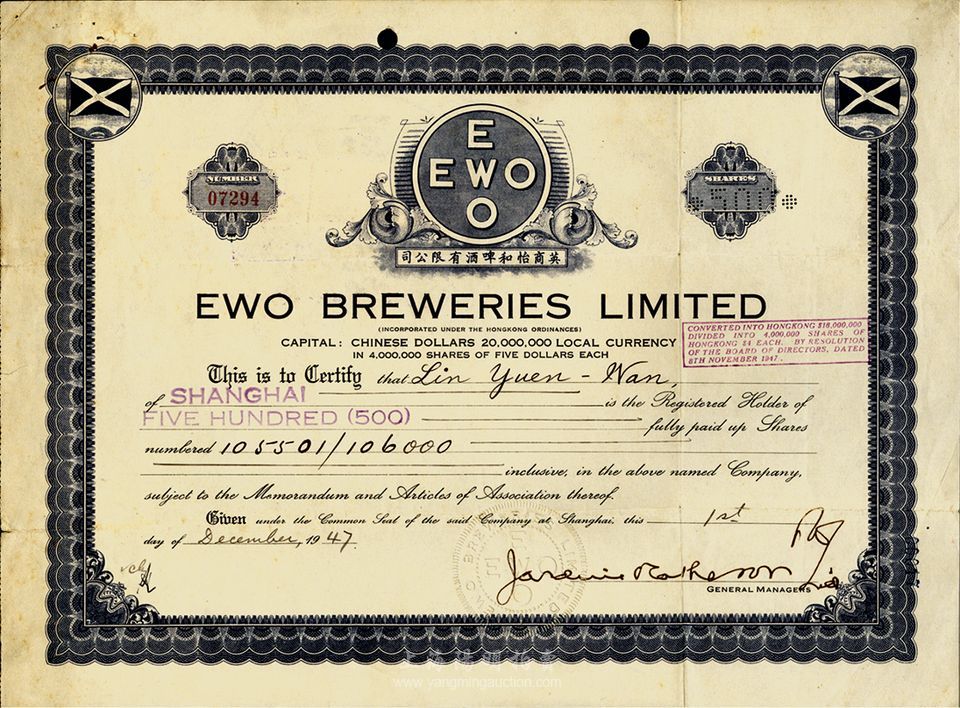 E
EWO
O
NUMBER
07294
SHARES
500
司公限有酒啤和怡商英
EWO BREWERIES LIMITED
(INCORPORATED UNDER THE HONGKONG ORDINANCES)
CAPITAL: CHINESE DOLLARS 20,000,000 LOCAL CURRENCY
IN 4,000,000 SHARES OF FIVE DOLLARS EACH
CONVERTED INTO HONGKONG $16,000,000
DIVIDED INTO 4,000,000 SHARES OF
HONGKONG $4 EACH. BY RESOLUTION
OF THE BOARD OF DIRECTORS, DATED
8TH NOVEMBER 1947.
This is to Certify that Lin Yuen-Nan,
of SHANGHAI is the Registered Holder of
FIVE HUNDRED (500) fully paid up Shares
numbered 105501/106000
inclusive, in the above named Company,
subject to the Memorandum and Articles of Association thereof.
Given under the Common Seal of the said Company at Shanghai, this 1st
day of December, 1947.
Jardine Matheson
GENERAL MANAGERS
www.yangmingauction.com